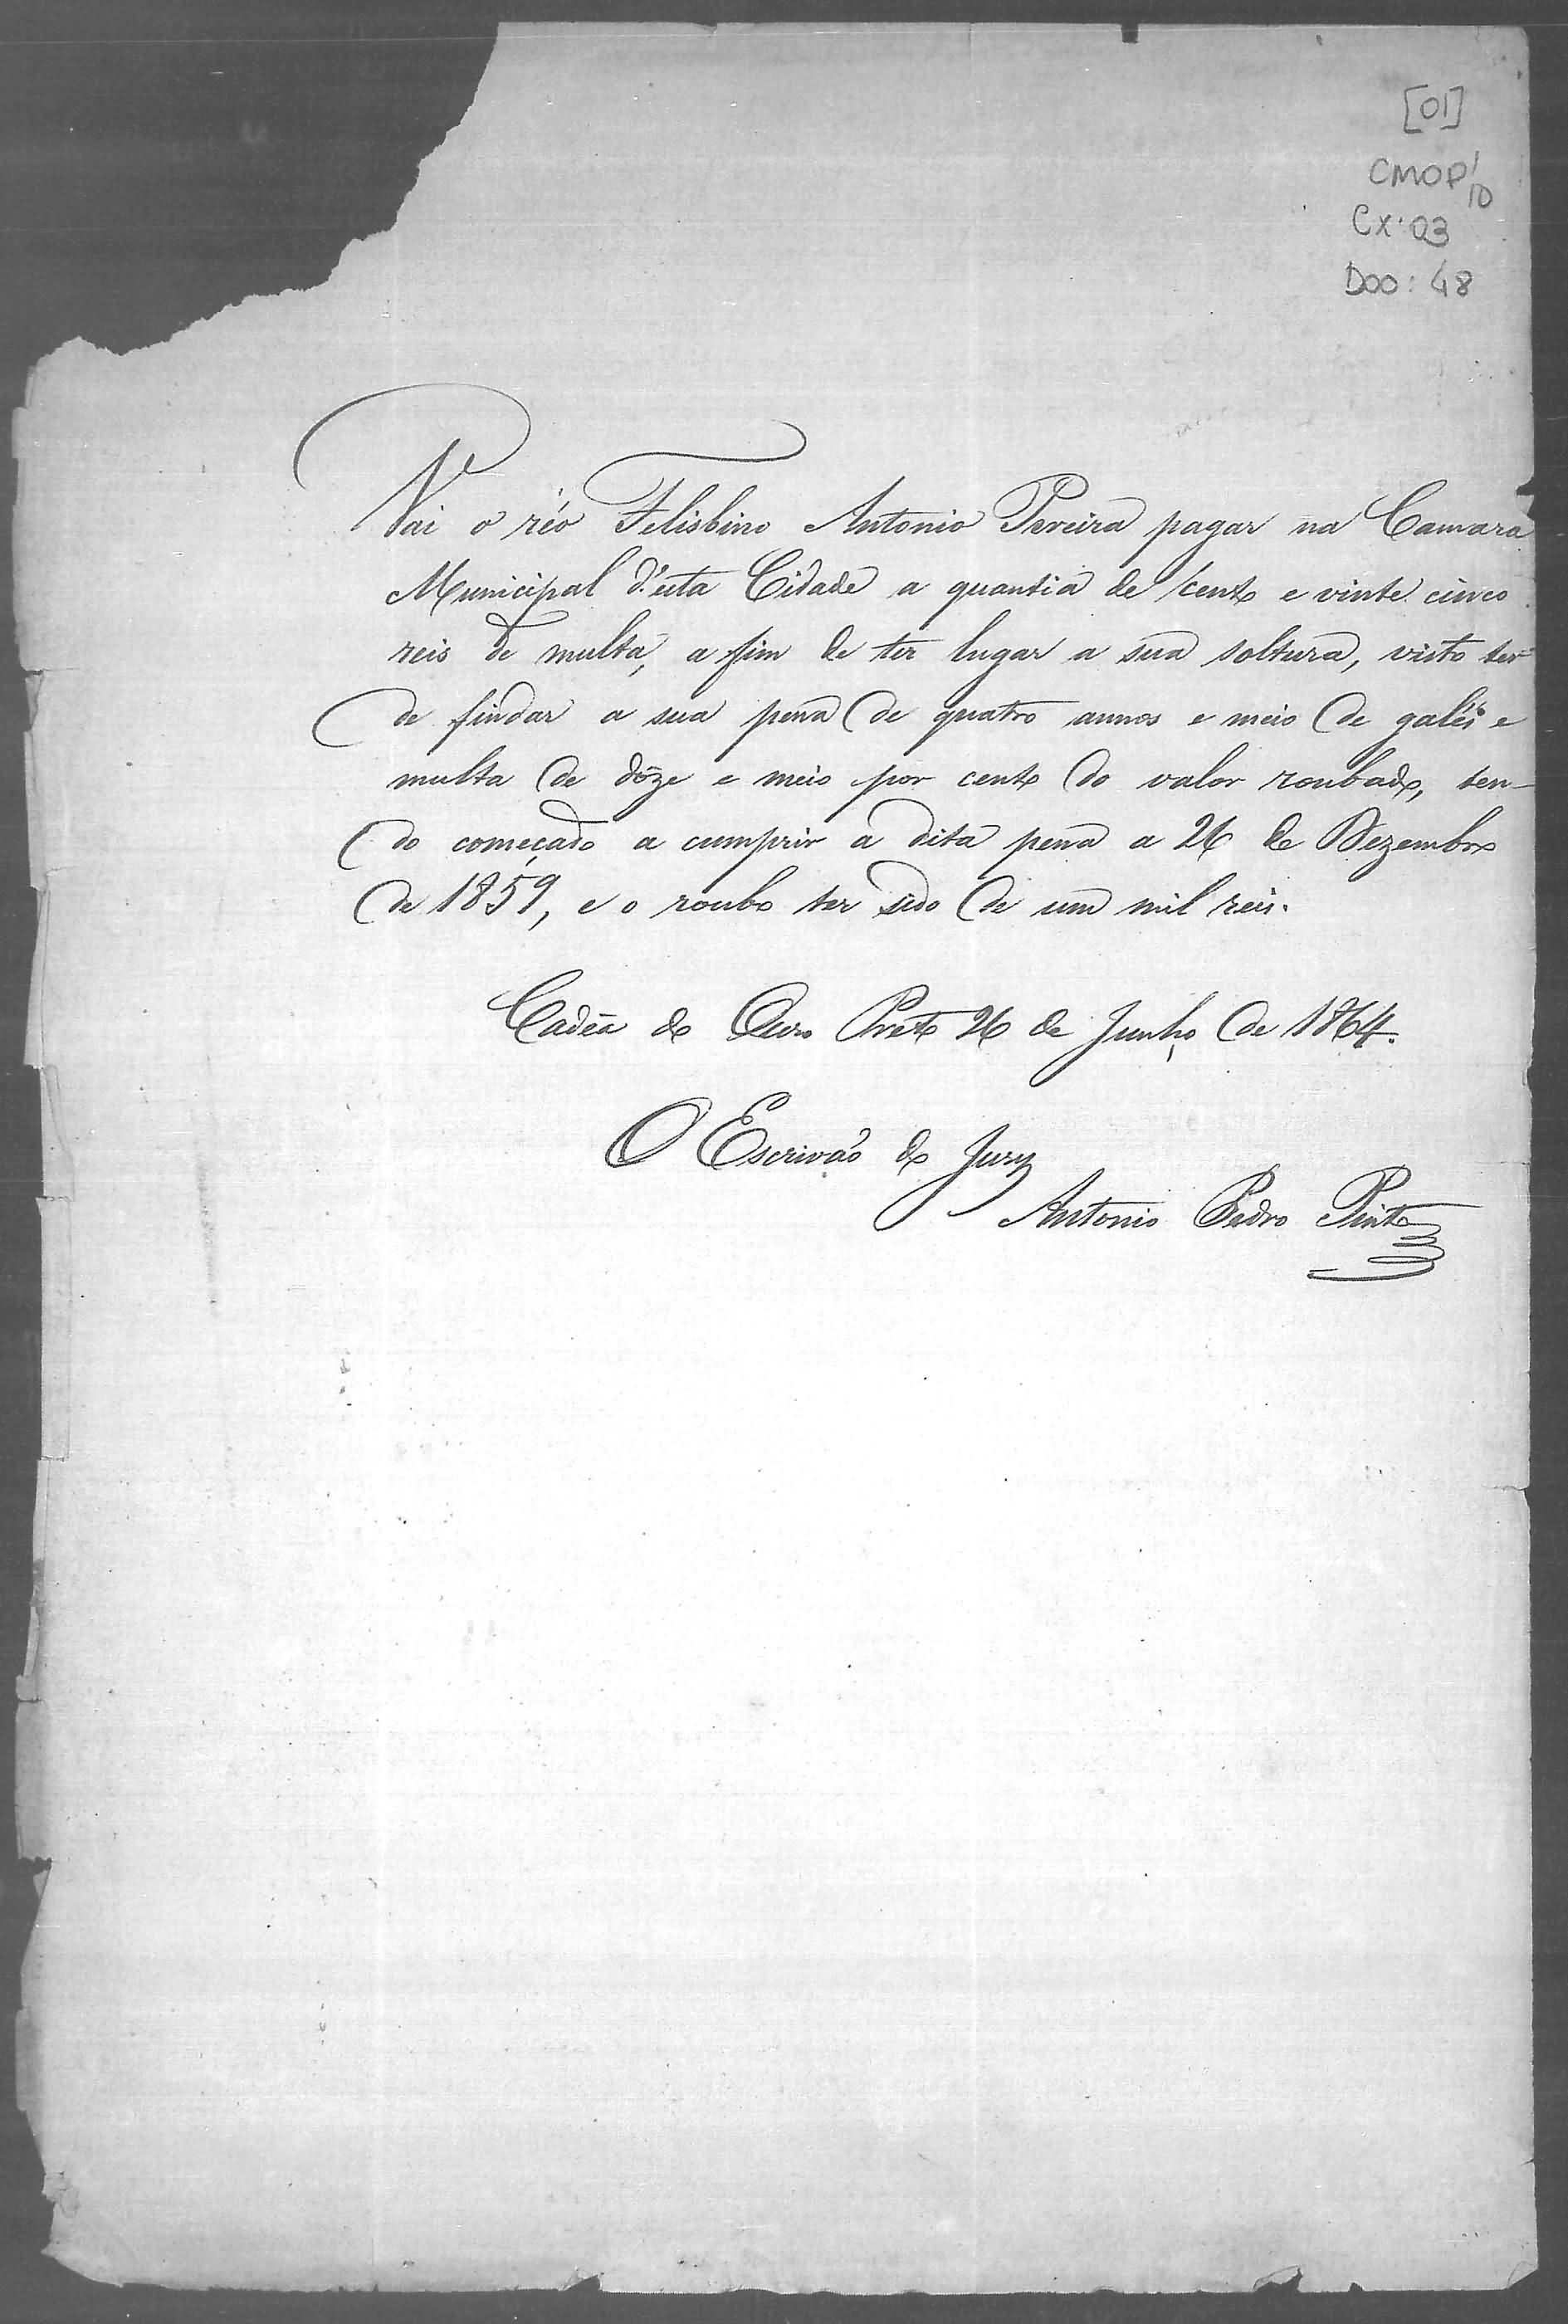 [01]
CMOP 1/10
CX: 03
Doo: 48
Vai o réo Felisbino Antonio Pereira pagar na Camara
Municipal d'esta Cidade a quantia de cento e vinte cinco
reis de multa, a fim de ter lugar a sua soltura, visto ter
de findar a sua pena de quatro annos e meio de galés e
multa de dôze e meio por cento do valor roubado, ten-
do começado a cumprir a dita pena a 26 de Dezembro
de 1859, e o roubo ter sido de um mil reis.
Cadêa do Ouro Preto 26 de Junho de 1864.
O Escrivão do Jury
Antonio Pedro Pinto